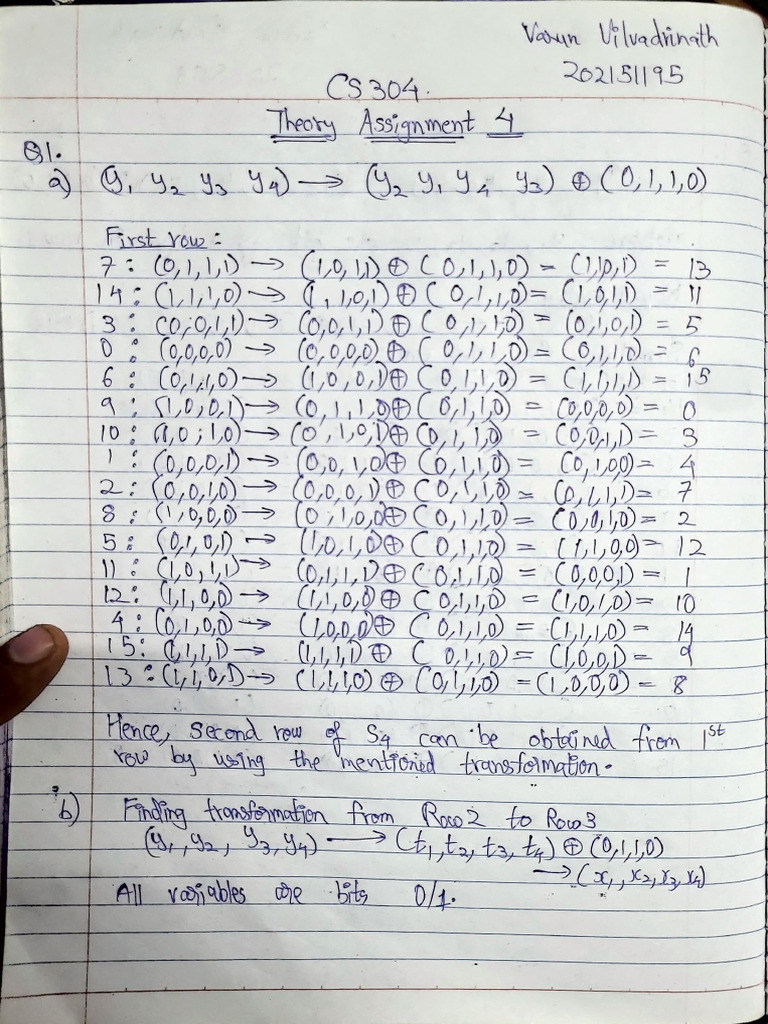 Varun Vilvadrinath
202151195
CS304.
Theory Assignment 4
Q1.
a) (y1 y2 y3 y4) → (y2 y1 y4 y3) ⊕ (0,1,1,0)
First row:
7: (0,1,1,1) → (1,0,1,1) ⊕ (0,1,1,0) = (1,1,0,1) = 13
14: (1,1,1,0) → (1,1,0,1) ⊕ (0,1,1,0) = (1,0,1,1) = 11
3: (0,0,1,1) → (0,0,1,1) ⊕ (0,1,1,0) = (0,1,0,1) = 5
0: (0,0,0,0) → (0,0,0,0) ⊕ (0,1,1,0) = (0,1,1,0) = 6
6: (0,1,1,0) → (1,0,0,1) ⊕ (0,1,1,0) = (1,1,1,1) = 15
9: (1,0,0,1) → (0,1,1,0) ⊕ (0,1,1,0) = (0,0,0,0) = 0
10: (1,0,1,0) → (0,1,0,1) ⊕ (0,1,1,0) = (0,0,1,1) = 3
1: (0,0,0,1) → (0,0,1,0) ⊕ (0,1,1,0) = (0,1,0,0) = 4
2: (0,0,1,0) → (0,0,0,1) ⊕ (0,1,1,0) = (0,1,1,1) = 7
8: (1,0,0,0) → (0,1,0,0) ⊕ (0,1,1,0) = (0,0,1,0) = 2
5: (0,1,0,1) → (1,0,1,0) ⊕ (0,1,1,0) = (1,1,0,0) = 12
11: (1,0,1,1) → (0,1,1,1) ⊕ (0,1,1,0) = (0,0,0,1) = 1
12: (1,1,0,0) → (1,1,0,0) ⊕ (0,1,1,0) = (1,0,1,0) = 10
4: (0,1,0,0) → (1,0,0,0) ⊕ (0,1,1,0) = (1,1,1,0) = 14
15: (1,1,1,1) → (1,1,1,1) ⊕ (0,1,1,0) = (1,0,0,1) = 9
13: (1,1,0,1) → (1,1,1,0) ⊕ (0,1,1,0) = (1,0,0,0) = 8
Hence, second row of S4 can be obtained from 1st
row by using the mentioned transformation.
b) Finding transformation from Row2 to Row3
(y1, y2, y3, y4) → (t1, t2, t3, t4) ⊕ (0,1,1,0)
→ (x1, x2, x3, x4)
All variables are bits 0/1.